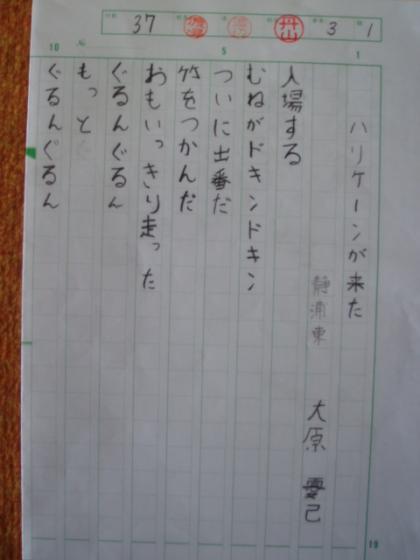 37
3
1
10
5
1
ハリケーンが来た
静浦東 大原
入場する
むねがドキンドキン
ついに出番だ
竹をつかんだ
おもいっきり走った
ぐるんぐるん
もっと
ぐるんぐるん
19